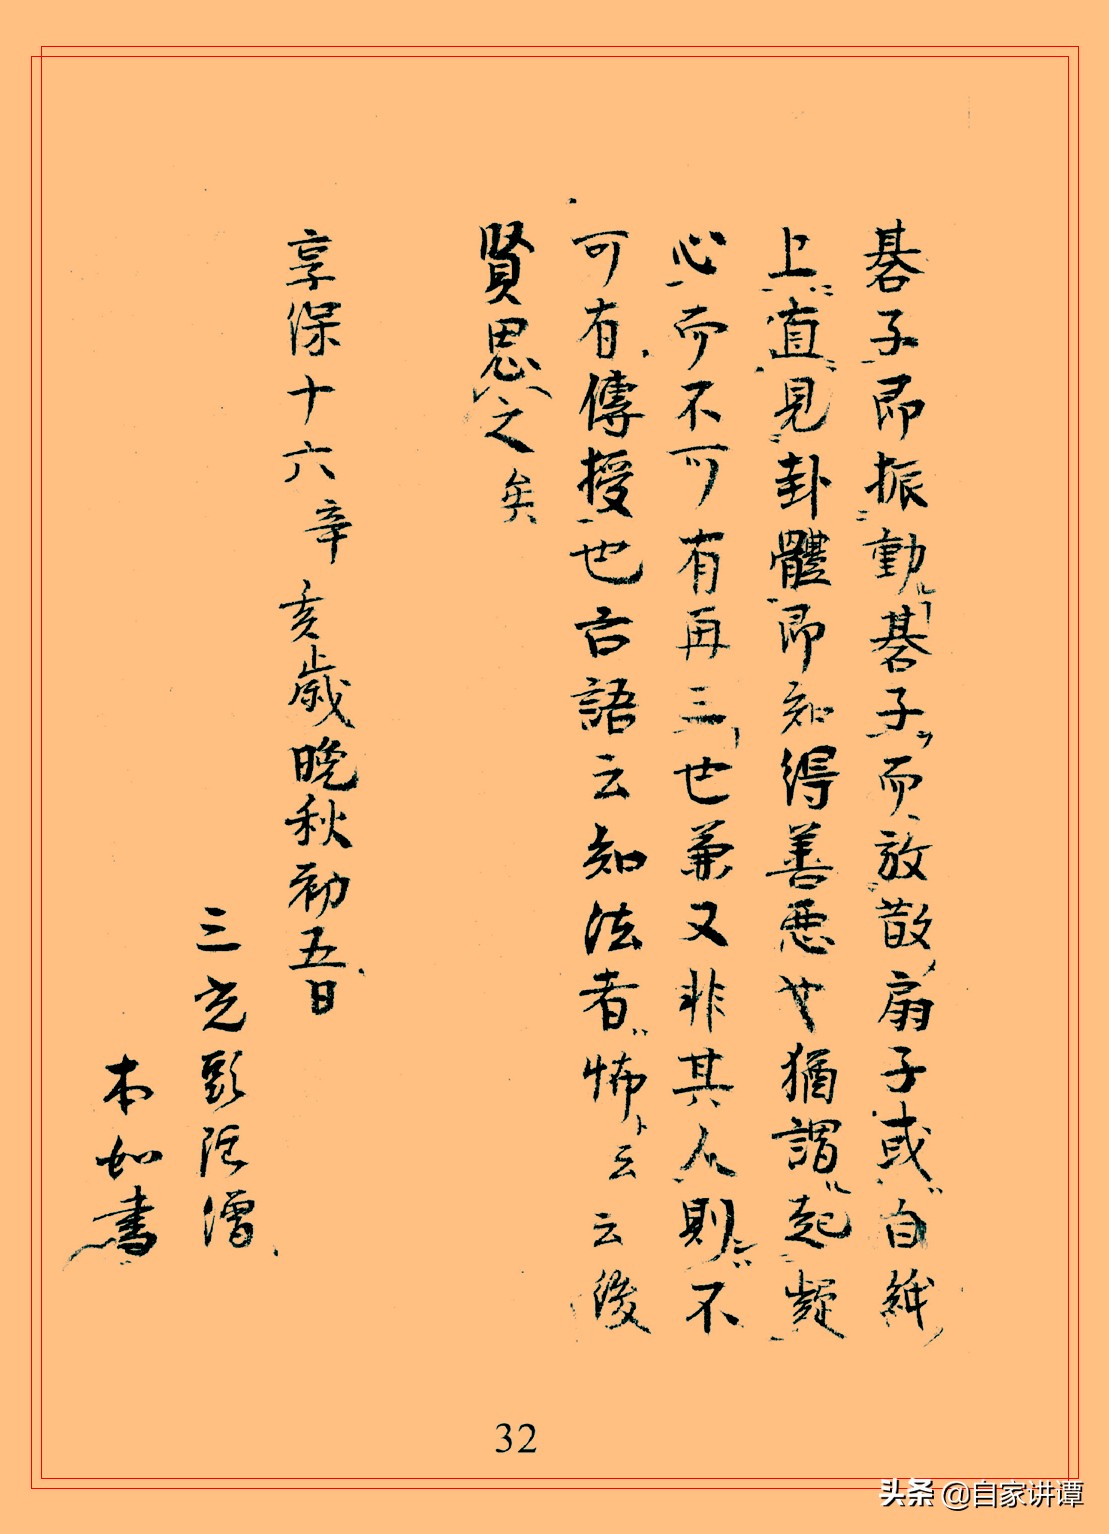 碁子即振動碁子而放散扇子或白紙
上直見卦體即知得善惡也猶謂起疑
心而不可有再三也兼又非其人則不
可有傳授也古語云知法者怖云云後
賢思之矣
享保十六辛亥歲晚秋初五日
三光彭阿僧
本如書
32
头条 @自家讲谭